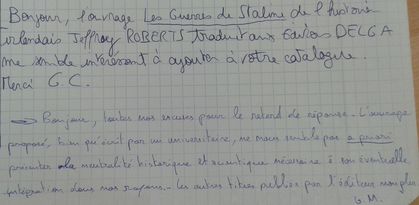 Bonjour, l'ouvrage Les Guerres de Staline de l'historien
irlandais Jeffroy ROBERTS traduit aux Editions DELGA
me semble intéressant à ajouter à votre catalogue.
Merci G.C.
→ Bonjour, toutes nos excuses pour le retard de réponse. L'ouvrage
proposé, bien qu'écrit par un universitaire, ne nous semble pas a priori
présenter la neutralité historique et scientifique nécessaire à son éventuelle
intégration dans nos rayons. Les autres titres publiés par l'éditeur non plus
G.M.